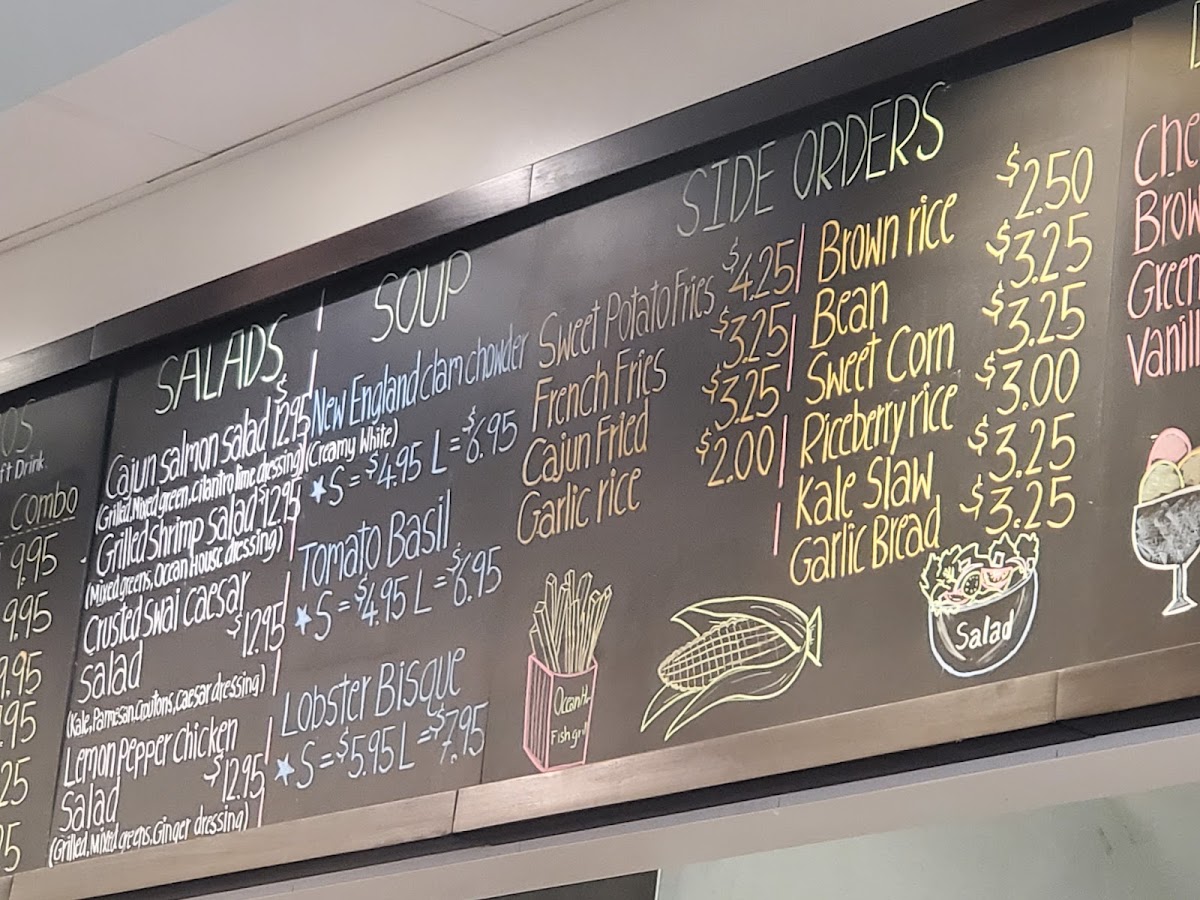 OS
ft Drink.
Combo
9.95
9.95
9.95
.95
25
5
SALADS
Cajun salmon salad $12.95
(Grilled, Mixed green, Cilantro lime dressing)
Grilled Shrimp salad $12.95
(Mixed greens, Ocean House dressing)
Crusted Swai Caesar
Salad $12.95
(Kale, Parmesan, Croutons, Caesar dressing)
Lemon Pepper Chicken
Salad $12.95
(Grilled, Mixed greens, Ginger dressing)
SOUP
New England clam chowder
(Creamy White)
★S = $4.95 L = $6.95
Tomato Basil
★S = $4.95 L = $6.95
Lobster Bisque
★S = $5.95 L = $7.95
SIDE ORDERS
Sweet Potato Fries $4.25
French Fries $3.25
Cajun Fried $3.25
Garlic rice $2.00
Brown rice $2.50
Bean $3.25
Sweet Corn $3.25
Riceberry rice $3.00
Kale Slaw $3.25
Garlic Bread $3.25
Ocean H
Fish gri
Salad
Che
Brow
Green
Vanill